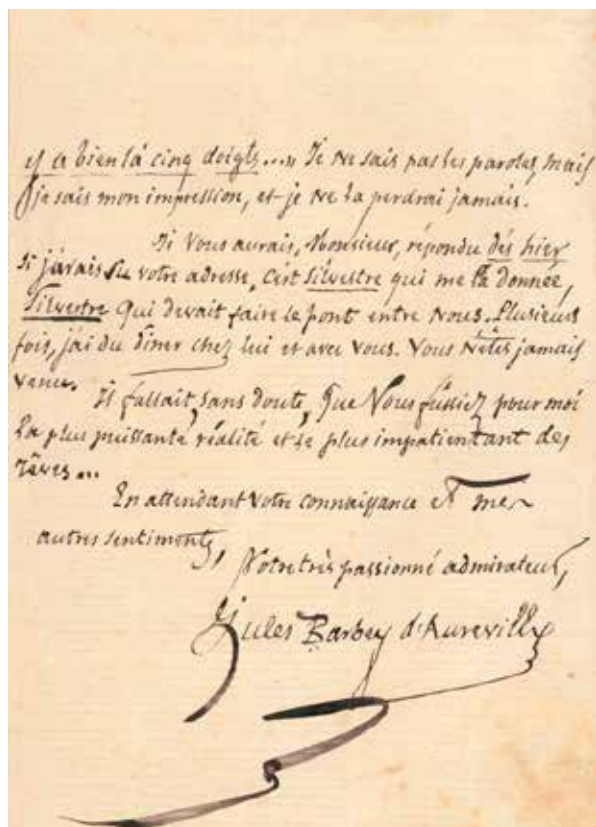 y a bien là cinq doigts....,, Je ne sais pas les paroles, mais
je sais mon impression, et je ne la perdrai jamais.
Je vous aurais, Monsieur, répondu dès hier
si j'avais su votre adresse, C'est Silvestre qui me l'a donnée,
Silvestre qui devait faire le pont entre nous. Plusieurs
fois, j'ai du diner chez lui et avec vous. Vous n'êtes jamais
venu.
Il fallait, sans doute, que Vous fussiez pour moi
la plus puissante réalité et le plus impatientant des
rêves...
En attendant votre connaissance et mes
autres sentiments,
Votre très passionné admirateur,
Jules Barbey d'Aurevilly